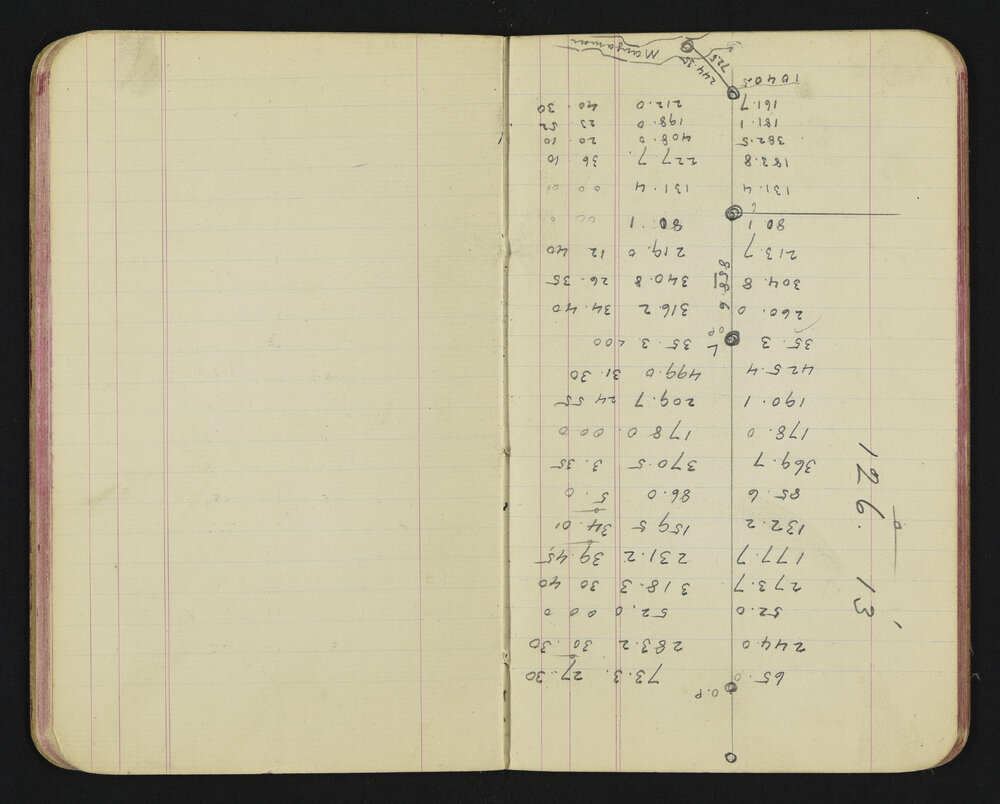 O.P
65.0 73.3. 27.30
244.0 283.2 30.30
52.0 52.0 00 0
273.7 318.3 30 40
177.7 231.2 39.45
132.2 159.5 34.01
85.6 86.0 5.0
126° 13'
369.7 370.5 3.35
178.0 178.0 00 0
190.1 209.7 24 55
425.4 499.0 31.30
35.3 O.P L 35.3 200
260.0 316.2 34.40
858.6
304.8 340.8 26.35
213.7 219.0 12 40
80.1 80.1 00 0
131.4 131.4 00 00
183.8 227.7 36 10
382.5 408.0 20 10
181.1 198.0 23 52
161.7 212.0 40 30
1040.5
244.35
725